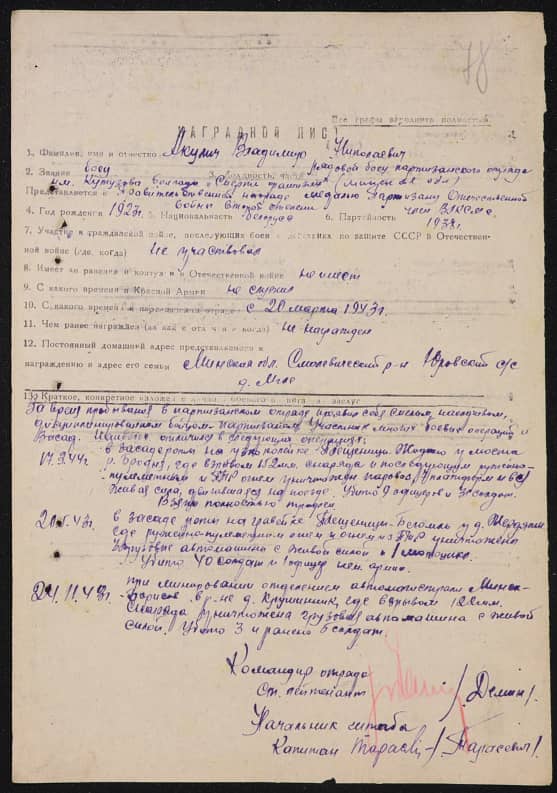 78
Все графы заполнить полностью
НАГРАДНОЙ ЛИСТ
1. Фамилия, имя и отчество Акулич Владимир Николаевич
2. Звание боец 3. Должность, часть рядовой боец партизанского отряда
им. Кутузова бригады "Смерть фашизму" Минской обл.
Представляется к правительственной награде медалью Партизану Отечественной
войны второй степени
4. Год рождения 1927г. 5. Национальность белорус 6. Партийность член ВЛКСМ с
1938г.
7. Участие в гражданской войне, последующих боевых действиях по защите СССР и Отечествен-
ной войне (где, когда) не участвовал
8. Имеет ли ранения и контузии в Отечественной войне не имеет
9. С какого времени в Красной Армии не служил
10. С какого времени в партизанском отряде с 20 марта 1943г.
11. Чем ранее награжден (за какие отличия и когда) не награжден
12. Постоянный домашний адрес представляемого к
награждению и адрес его семьи Минская обл. Смолевичский р-н Юровский с/с
д.
13) Краткое, конкретное изложение личного боевого подвига или заслуг
За время пребывания в партизанском отряде проявил себя смелым, находчивым,
дисциплинированным бойцом партизаном. Участник многих боевых операций и
засад. Наиболее отличился в следующих операциях:
в засаде роты на узкоколейке Плещеницы-Жодино у моста
р. Бродня, где взрывом 152мм. снаряда и последующим ружейно-
пулеметным и ПТР огнем уничтожен паровоз, платформ и вся
живая сила, двигавшаяся на поезде. Убито 9 офицеров и солдат.
Взяты полностью трофеи
в засаде роты на гравейке Плещеницы-Бегомль у д.
где ружейно-пулеметным огнем и огнем из ПТР уничтожена
грузовые автомашины с живой силой и 1 мотоцикл.
Убито 40 солдат и 1 офицер нем. армии.
24.11.43г. при минировании отделением автомагистрали Минск-
Борисов в р-не д. где взрывом 122мм.
снаряда уничтожена грузовая автомашина с живой
силой. Убито 3 и ранено 6 солдат.
Командир отряда
Ст. лейтенант /Демин/.
Начальник штаба
Капитан Тарасевич /Тарасевич/.